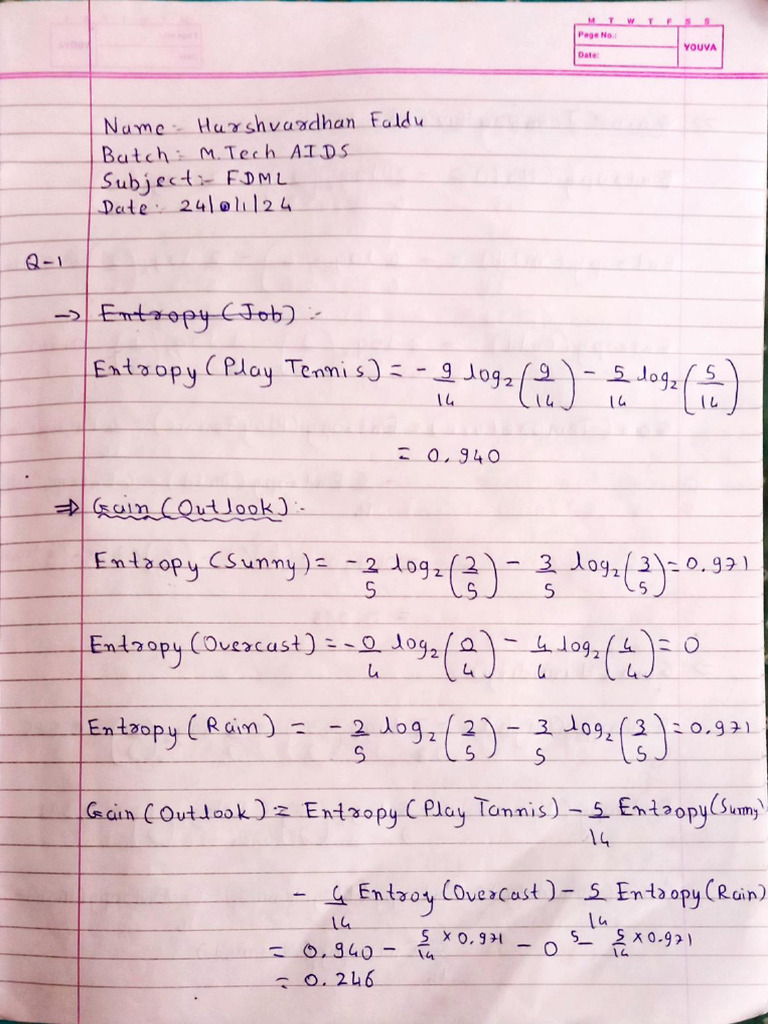 M T W T F S S
Page No.:
YOUVA
Date:
Name :- Harshvardhan Faldu
Batch :- M.Tech AIDS
Subject :- FDML
Date :- 24/01/24
Q-1
→ Entropy (Job) :-
Entropy (Play Tennis) = - 9/14 log₂ (9/14) - 5/14 log₂ (5/14)
= 0.940
⇒ Gain (Outlook) :-
Entropy (Sunny) = - 2/5 log₂ (2/5) - 3/5 log₂ (3/5) = 0.971
Entropy (Overcast) = - 0/4 log₂ (0/4) - 4/4 log₂ (4/4) = 0
Entropy (Rain) = - 2/5 log₂ (2/5) - 3/5 log₂ (3/5) = 0.971
Gain (Outlook) = Entropy (Play Tannis) - 5/14 Entropy (Sunny)
- 4/14 Entroy (Overcast) - 5/14 Entropy (Rain)
= 0.940 - 5/14 × 0.971 - 0 - 5/14 × 0.971
= 0.246